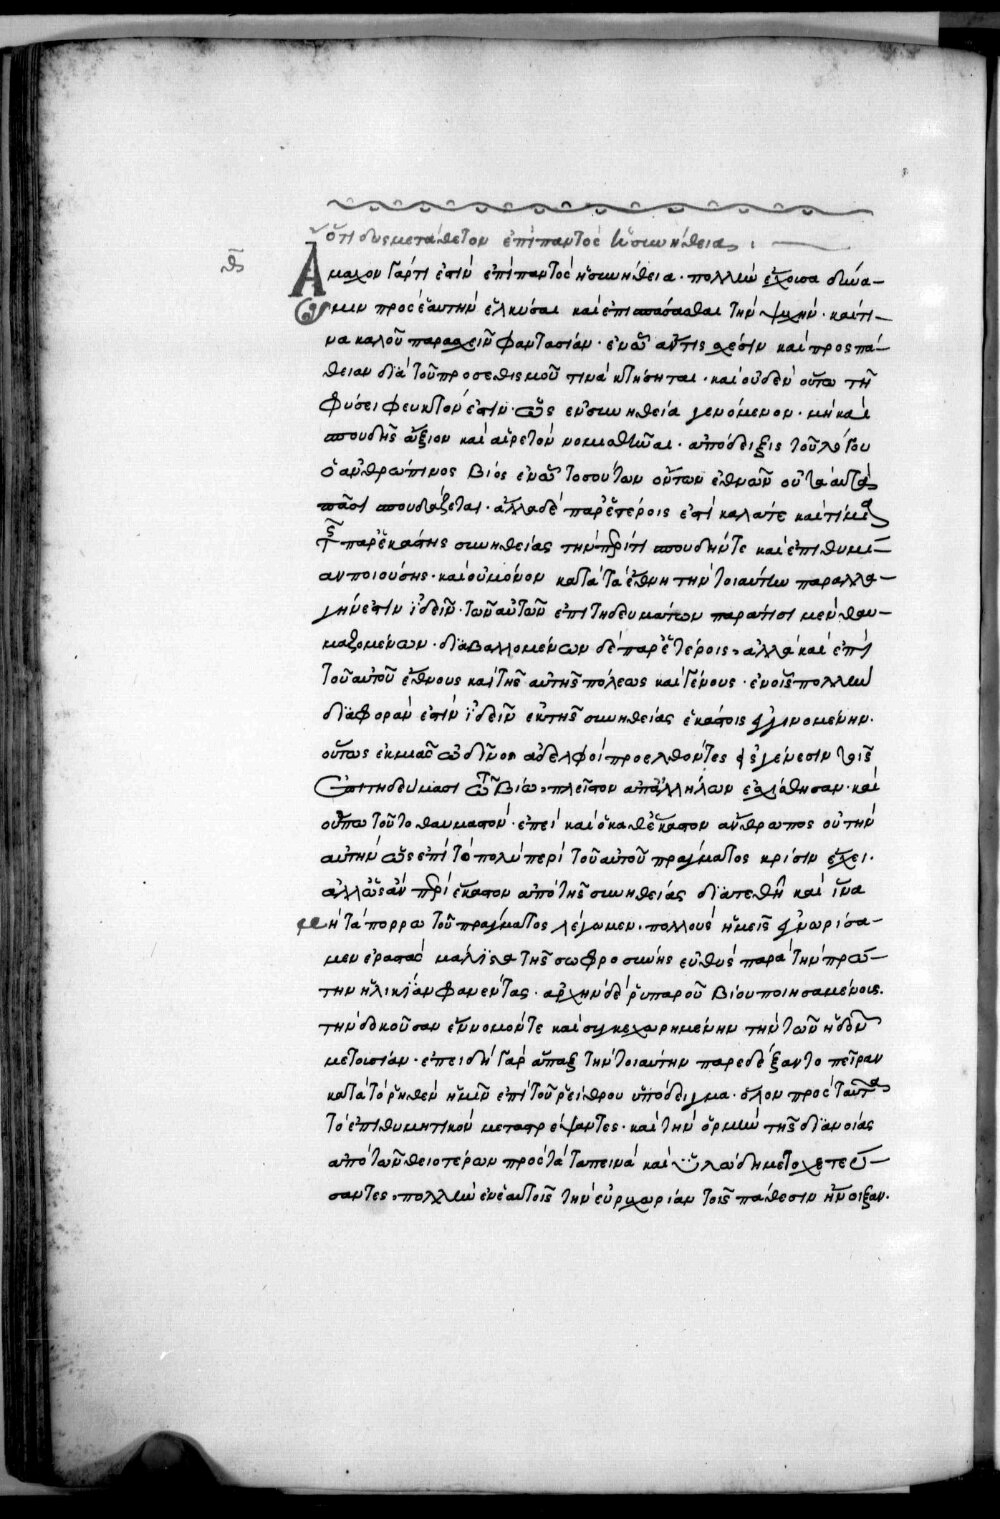 ὅτι δυσμετάθετον ἐπὶ παντὸς ἡ συνήθεια
θ
Ἄμαχον γάρ τί ἐστιν ἐπὶ παντὸς ἡ συνήθεια· πολλὴν ἔχουσα δύνα-
μιν πρὸς ἑαυτὴν ἑλκύσαι καὶ ἐπισπάσασθαι τὴν ψυχήν· καί τι-
να καλοῦ παρασχεῖν φαντασίαν· ἐν ᾧ ἄν τις σχέσιν καὶ προσπά-
θειαν διὰ τοῦ προσεθισμοῦ τινὰ κτήσηται· καὶ οὐδὲν οὕτω τῇ
φύσει φευκτόν ἐστιν· ὡς ἐν συνηθείᾳ γενόμενον· μὴ καὶ
σπουδῆς ἄξιον καὶ αἱρετὸν νομισθῆναι· ἀπόδειξις τοῦ λόγου
ὁ ἀνθρώπινος βίος ἐν ᾧ τοσούτων ὄντων ἐθνῶν οὐ ταὐτὰ
πᾶσι σπουδάζεται· ἄλλα δὲ παρ' ἑτέροις ἐστὶ καλά τε καὶ τίμια
τῆς παρ' ἑκάστης συνηθείας τὴν περί τι σπουδήν τε καὶ ἐπιθυμί-
αν ποιούσης· καὶ οὐ μόνον κατὰ τὰ ἔθνη τὴν τοιαύτην παραλλα-
γήν ἐστιν ἰδεῖν· τῶν αὐτῶν ἐπιτηδευμάτων παρά τισι μὲν θαυ-
μαζομένων· διαβαλλομένων δὲ παρ' ἑτέροις, ἀλλὰ καὶ ἐπὶ
τοῦ αὐτοῦ ἔθνους καὶ τῆς αὐτῆς πόλεως καὶ γένους· ἐν οἷς πολλὴν
διαφοράν ἐστιν ἰδεῖν ἐκ τῆς συνηθείας ἑκάστοις ἐγγινομένην·
οὕτως ἐκ μιᾶς ὠδῖνος ἀδελφοὶ προελθόντες εἰς γένεσιν τοῖς
ἐπιτηδεύμασι τῶ βίω, πλεῖστον ἀπ' ἀλλήλων ἐσχίσθησαν· καὶ
οὔπω τοῦτο θαυμαστόν· ἐπεὶ καὶ ὁ καθέκαστον ἄνθρωπος οὐ τὴν
αὐτὴν ὡς ἐπὶ τὸ πολὺ περὶ τοῦ αὐτοῦ πράγματος κρίσιν ἔχει·
ἀλλ' ὡς ἂν περὶ ἕκαστον ἀπὸ τῆς συνηθείας διατεθῇ καὶ ἵνα
μὴ τὰ πόρρω τοῦ πράγματος λέγωμεν, πολλοὺς ἡμεῖς ἐγνωρίσα-
μεν ἐραστὰς μάλιστα τῆς σωφροσύνης εὐθὺς παρὰ τὴν πρώ-
την ἡλικίαν φανέντας· ἀρχὴν δὲ ῥυπαροῦ βίου ποιησαμένους·
τὴν δοκοῦσαν ἔννομόν τε καὶ συγκεχωρημένην τὴν τῶν ἡδονῶν
μετουσίαν· ἐπειδὴ γὰρ ἅπαξ τὴν τοιαύτην παρεδέξαντο πεῖραν
κατὰ τὸ ῥηθὲν ἡμῖν ἐπὶ τοῦ ῥείθρου ὑπόδειγμα· ὅλον πρὸς ταῦτα
τὸ ἐπιθυμητικὸν μεταστρέψαντες· καὶ τὴν ὁρμὴν τῆς διανοίας
ἀπὸ τῶν θειοτέρων πρὸς τὰ ταπεινὰ καὶ ὑλώδη μετοχετεύ-
σαντες, πολλὴν ἐν ἑαυτοῖς τὴν εὐρυχωρίαν τοῖς πάθεσιν ἤνοιξαν·